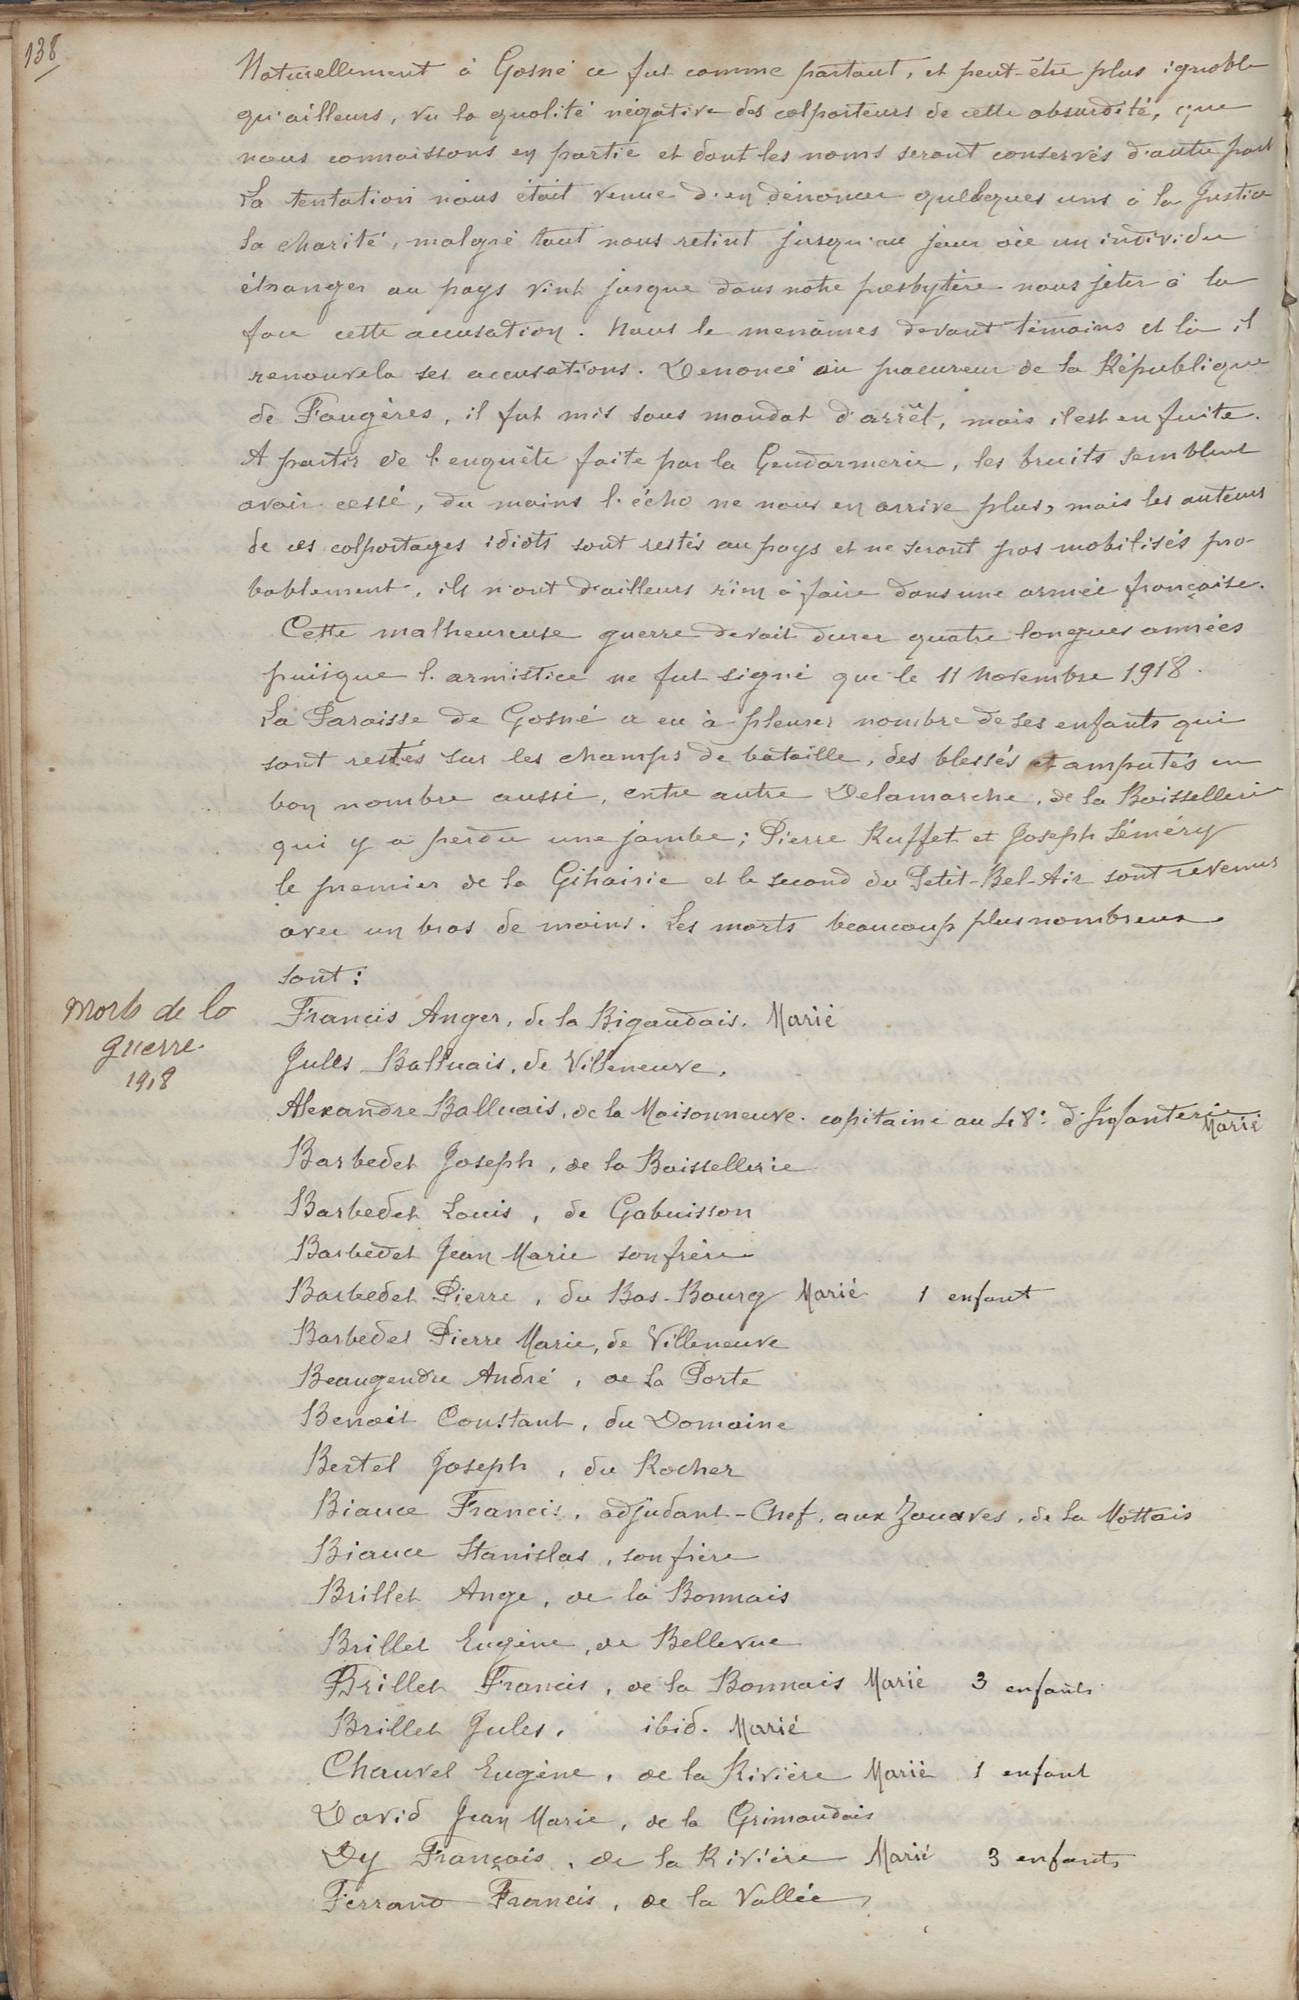 138
Naturellement à Gosné ce fut comme partout, et peut-être plus ignoble
qu'ailleurs, vu la qualité négative des colporteurs de cette absurdité, que
nous connaissons en partie et dont les noms seront conservés d'autre part
La tentation nous était venue d'en dénoncer quelques uns à la Justice
La charité, malgré tout nous retint jusqu'au jour où un individu
étranger au pays vint jusque dans notre presbytère nous jeter à la
face cette accusation. Nous le menâmes devant témoins et là il
renouvela ses accusations. Dénoncé au procureur de la République
de Fougères, il fut mis sous mandat d'arrêt, mais il est en fuite.
A partir de l'enquête faite par la Gendarmerie, les bruits semblent
avoir cessé, du moins l'écho ne nous en arrive plus, mais les auteurs
de ces colportages idiots sont restés au pays et ne seront pas mobilisés pro-
bablement, ils n'ont d'ailleurs rien à faire dans une armée française.
Cette malheureuse guerre devait durer quatre longues années
puisque l'armistice ne fut signé que le 11 Novembre 1918.
La Paroisse de Gosné a eu à pleurer nombre de ses enfants qui
sont restés sur les champs de bataille, des blessés et amputés en
bon nombre aussi, entre autre Delamarche, de la Boissellerie
qui y a perdu une jambe; Pierre Ruffet et Joseph Séméry
le premier de la Gihairie et le second du Petit-Bel-Air sont revenus
avec un bras de moins. Les morts beaucoup plus nombreux
sont :
Morts de la
guerre.
1918
Francis Anger, de la Rigaudais. Marié
Jules Balluais, de Villeneuve.
Alexandre Balluais, de la Maisonneuve. capitaine au 48e d'Infanterie Marié
Barbedet Joseph, de la Boissellerie
Barbedet Louis, de Gabuisson
Barbedet Jean Marie son frère
Barbedet Pierre, du Bas-Bourg Marié 1 enfant
Barbedet Pierre Marie, de Villeneuve
Beaugendre André, de la Porte
Benoit Constant, du Domaine
Bertel Joseph, du Rocher
Biauce Francis, adjudant-Chef, aux Zouaves, de la Mottais
Biauce Stanislas, son frère
Brillet Ange, de la Bonnais
Brillet Eugène, de Bellevue
Brillet Francis, de la Bonnais Marié 3 enfants
Brillet Jules, ibid. Marié
Chauvel Eugène, de la Rivière Marié 1 enfant
David Jean Marie, de la Grimaudais
Dy François, de la Rivière Marié 3 enfants
Ferrand Francis, de la Vallée,